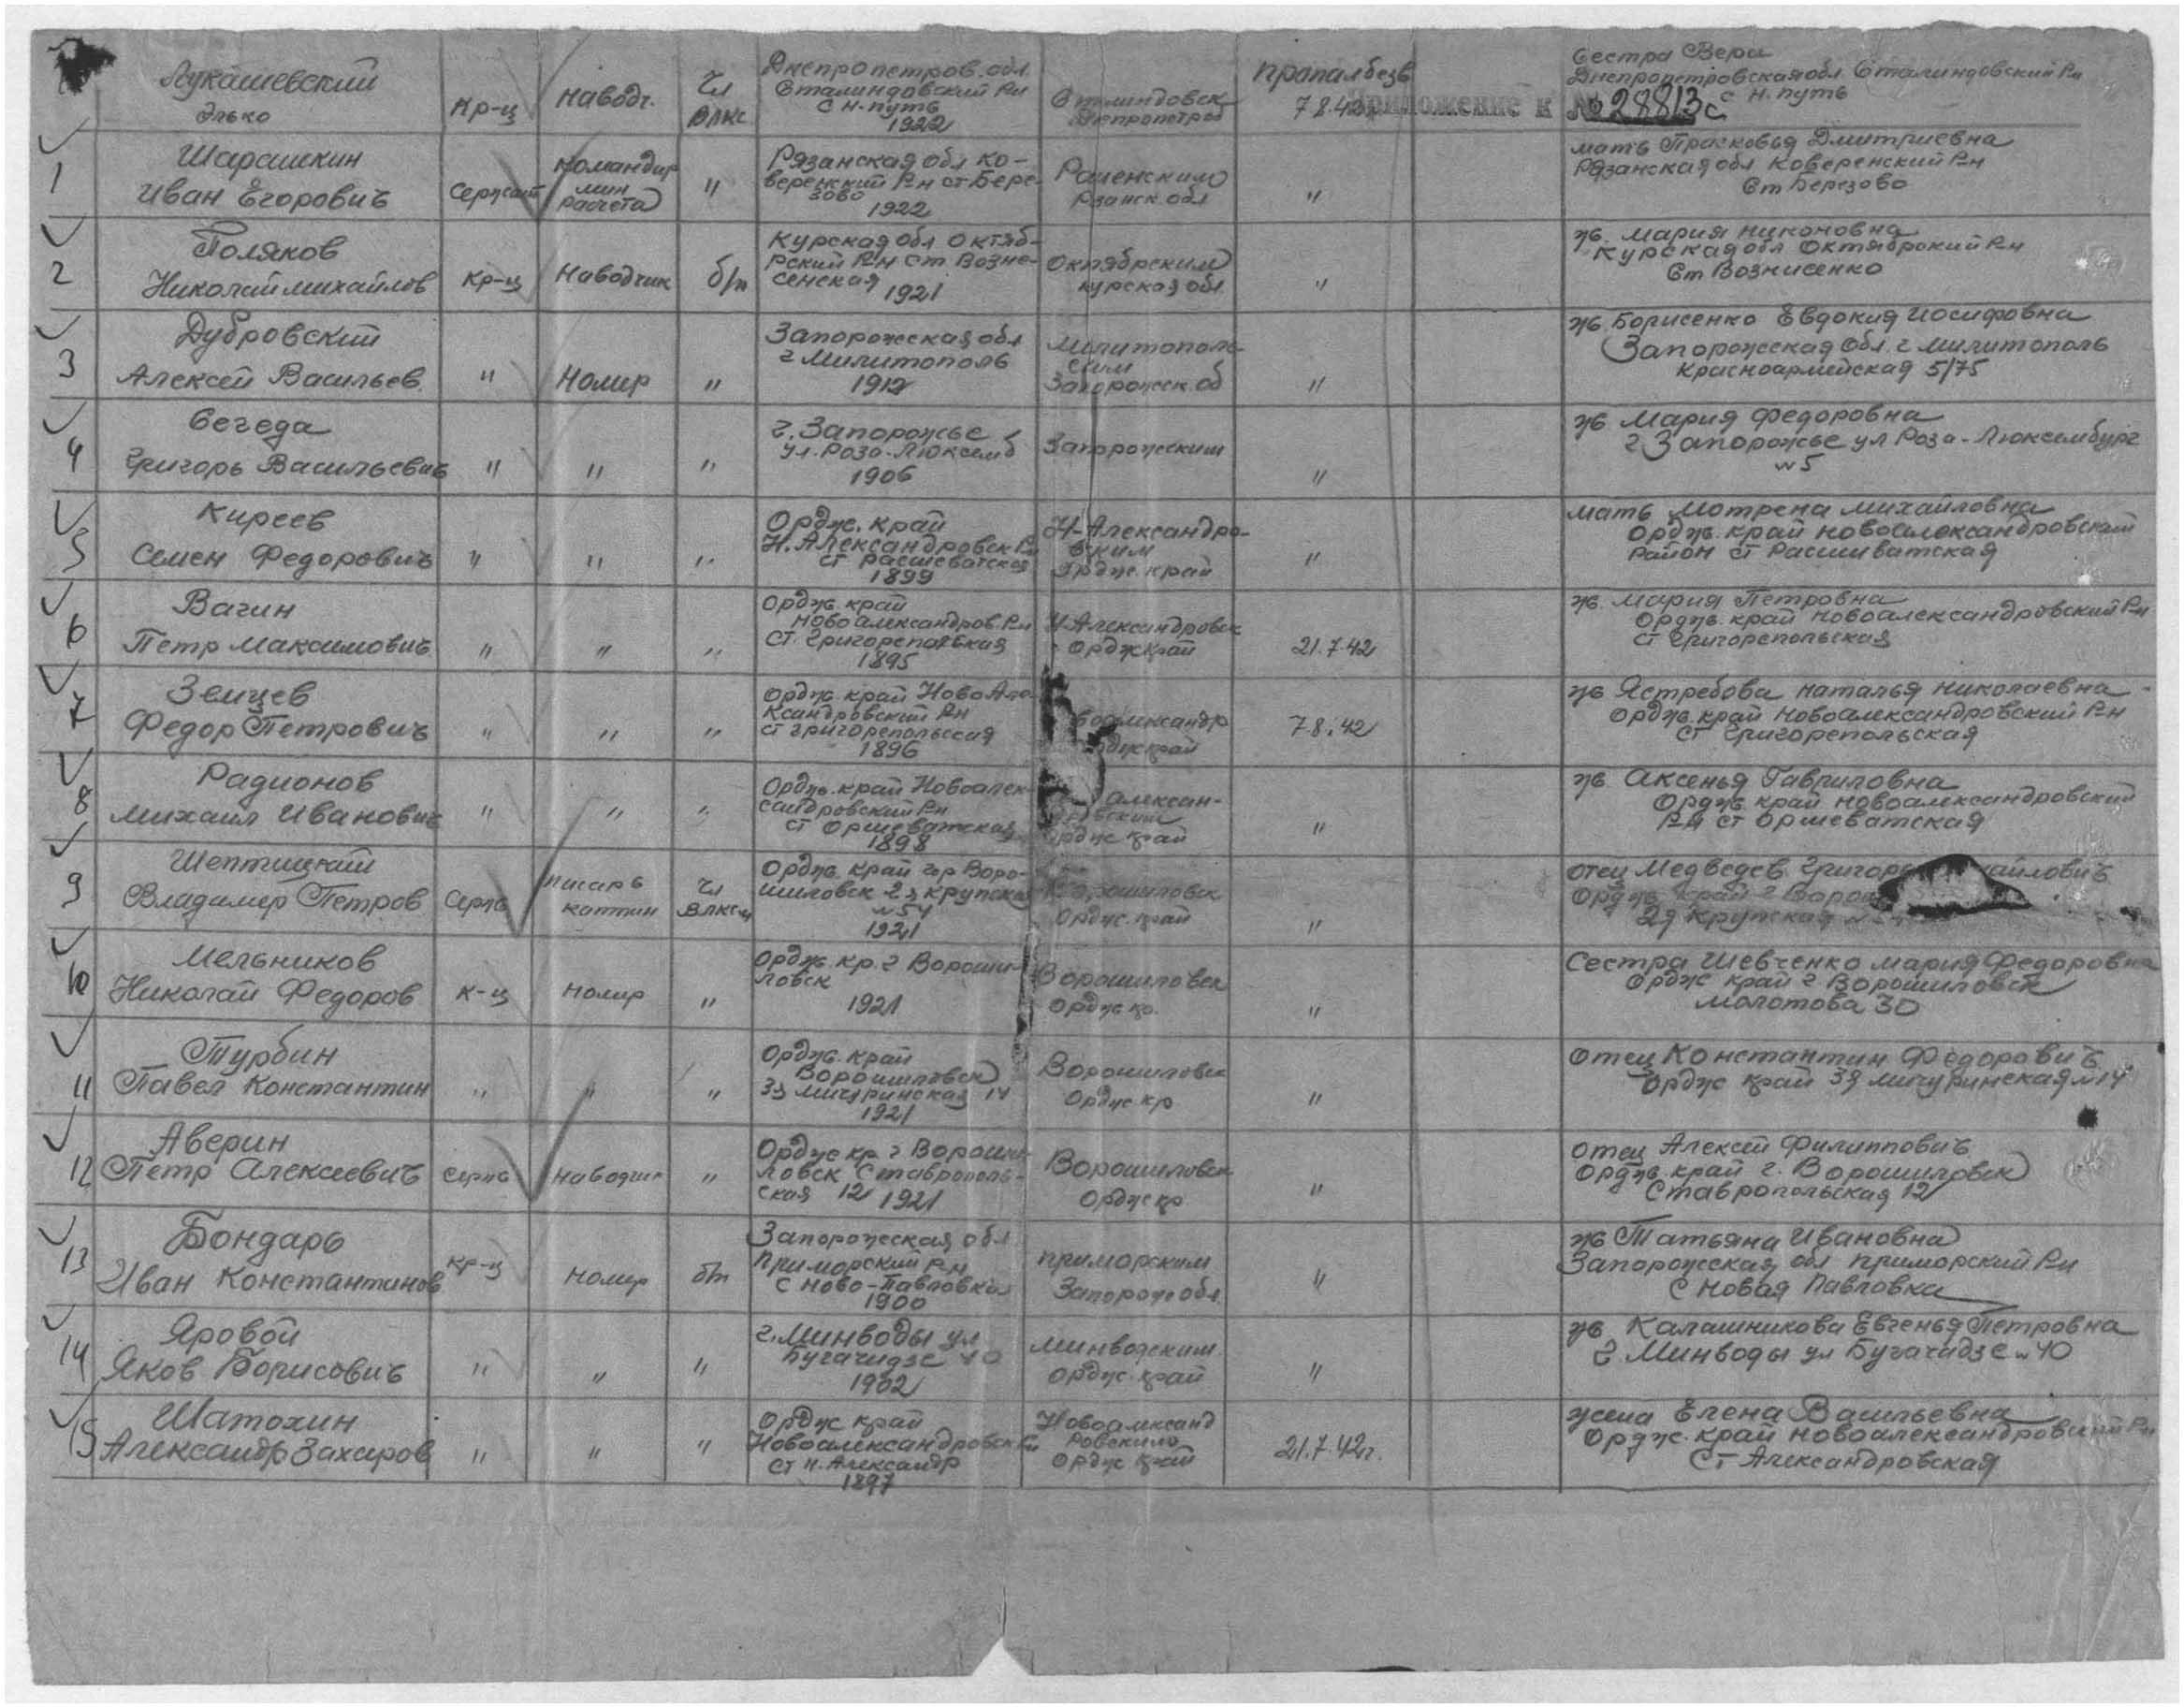 Лукашевский
Элько
Кр-ц
Наводч.
Чл
ВЛКС
Днепропетров. обл
Сталиндовский Рн
с Н. путь
1922
Сталиндовск
Днепропетров
пропал безв
7.8.42
Приложение к № 28813с
Сестра Вера
Днепропетровская обл Сталиндовский Рн
с Н. путь
1
Шарашкин
Иван Егорович
Сержант
Командир
мин
расчета
"
Рязанская обл Ко-
веренский Р-н ст Бере-
зово
1922
Раменским
Рзанск. обл
"
мать Прасковья Дмитриевна
Рязанская обл Коверенский Р-н
Ст Березово
2
Поляков
Николай Михайлов
Кр-ц
Наводчик
б/п
Курская обл Октяб-
рский Р-н ст Возне-
сенская
1921
Октябрским
курская обл
"
ж. Мария Никоновна
Курская обл Октябрский Р-н
Ст Вознисенко
3
Дубровский
Алексей Васильев.
"
Номир
"
Запорожская обл
г Милитополь
1912
Милитополь-
ским
Запорожск. об
"
ж. Борисенко Евдокия Иосифовна
Запорожская обл. г Милитополь
Красноармейская 5/75
4
Сегеда
Григорь Васильевич
"
"
"
г. Запорожье
ул. Роза-Люксемб
1906
Запорожским
"
ж Мария Федоровна
г Запорожье ул Роза-Люксембург
№5
5
Киреев
Семен Федорович
"
"
"
Ордж. край
Н. Александровск Рн
ст Расшеватская
1899
Н-Александро-
вским
Ордж. край
"
мать Мотрена Михайловна
Ордж. край Новоалександровский
район ст Расшиватская
6
Вагин
Петр Максимович
"
"
"
Ордж. край
Новоалександров. Рн
ст. Григореполская
1895
Н-Александровск
Ордж край
21.7.42
ж. Мария Петровна
Ордж. край Новоалександровский Р-н
ст Григорепольская
7
Земцев
Федор Петрович
"
"
"
Ордж. край Ново Але-
ксандровский Рн
ст Григорепольская
1896
воалександр
рдж край
7.8.42
ж Ястребова Наталья Николаевна
Ордж. край Новоалександровский Р-н
ст Григорепольская
8
Радионов
Михаил Иванович
"
"
"
Ордж. край Новоалек-
сандровский Р-н
ст Оршеватская
1898
алексан-
дровским
Ордж край
"
ж. Аксенья Гавриловна
Ордж край Новоалександровский
Р-н ст Оршеватская
9
Шептицкий
Владимер Петров
Серж
писарь
каптин
Чл
ВЛКСМ
Ордж. край гор Воро-
шиловск 2я Крупская
№54
1921
Ворошиловск
Ордж. край
"
отец Медведев Григорь айлович
Ордж край г Воро
2я Крупская №
10
Мельников
Николай Федоров
К-ц
Номир
"
Ордж. кр. г Вороши-
ловск
1921
Ворошиловск
Ордж кр.
"
Сестра Шевченко Мария Федоровна
Ордж край г Ворошиловск
Молотова 30
11
Турбин
Павел Константин
"
"
"
Ордж. край
Ворошиловск
3я Мичуринская 14
1921
Ворошиловск
Ордж кр
"
Отец Константин Федорович
Ордж край 3я Мичуринская №14
12
Аверин
Петр Алексеевич
Серж
Наводчик
"
Ордж кр г Вороши-
ловск Ставрополь-
ская 12 1921
Ворошиловск
Ордж кр
"
Отец Алексей Филиппович
Ордж. край г. Ворошиловск
Ставропольская 12
13
Бондарь
Иван Константинов
Кр-ц
Номир
б/п
Запорожская обл
Приморский Р-н
с Ново-Павловка
1900
Приморским
Запорож обл.
"
ж Татьяна Ивановна
Запорожская обл Приморский Р-н
с Новая Павловка
14
Яровой
Яков Борисович
"
"
"
г. Минводы ул
Бугачидзе 40
1902
Минводским
Ордж. край
"
ж. Калашникова Евгенья Петровна
г. Минводы ул Бугачидзе №40
15
Шатохин
Александр Захаров
"
"
"
Ордж край
Новоалександровск Рн
ст Н. Александр
1897
Новоалександ
ровским
Ордж край
21.7.42г.
жена Елена Васильевна
Ордж. край Новоалександровский Рн
Ст Александровская